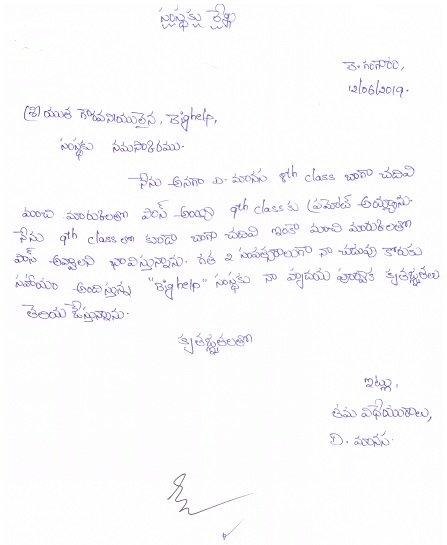 సంస్థకు లేఖ
కె. గంగారం,
12/06/2019.
శ్రీయుత గౌరవనీయులైన, Bighelp,
సంస్థకు నమస్కారము.
నేను అనగా D. మానస 8th class బాగా చదివి
మంచి మార్కులతో పాస్ అయ్యి 9th class కు ప్రమోట్ అయ్యాను.
నేను 9th class లో కుడా బాగా చదివి ఇంకా మంచి మార్కులతో
పాస్ అవ్వాలని భావిస్తున్నాను. గత 2 సంవత్సరాలుగా నా చదువు కోరుకు
సహాయం అందిస్తున్న "Bighelp" సంస్థకు నా హృదయ పూర్వక కృతజ్ఞతలు
తెలియ చేస్తున్నాను.
కృతజ్ఞతలతో
ఇట్లు,
తమ విధేయురాలు,
D. మానస.